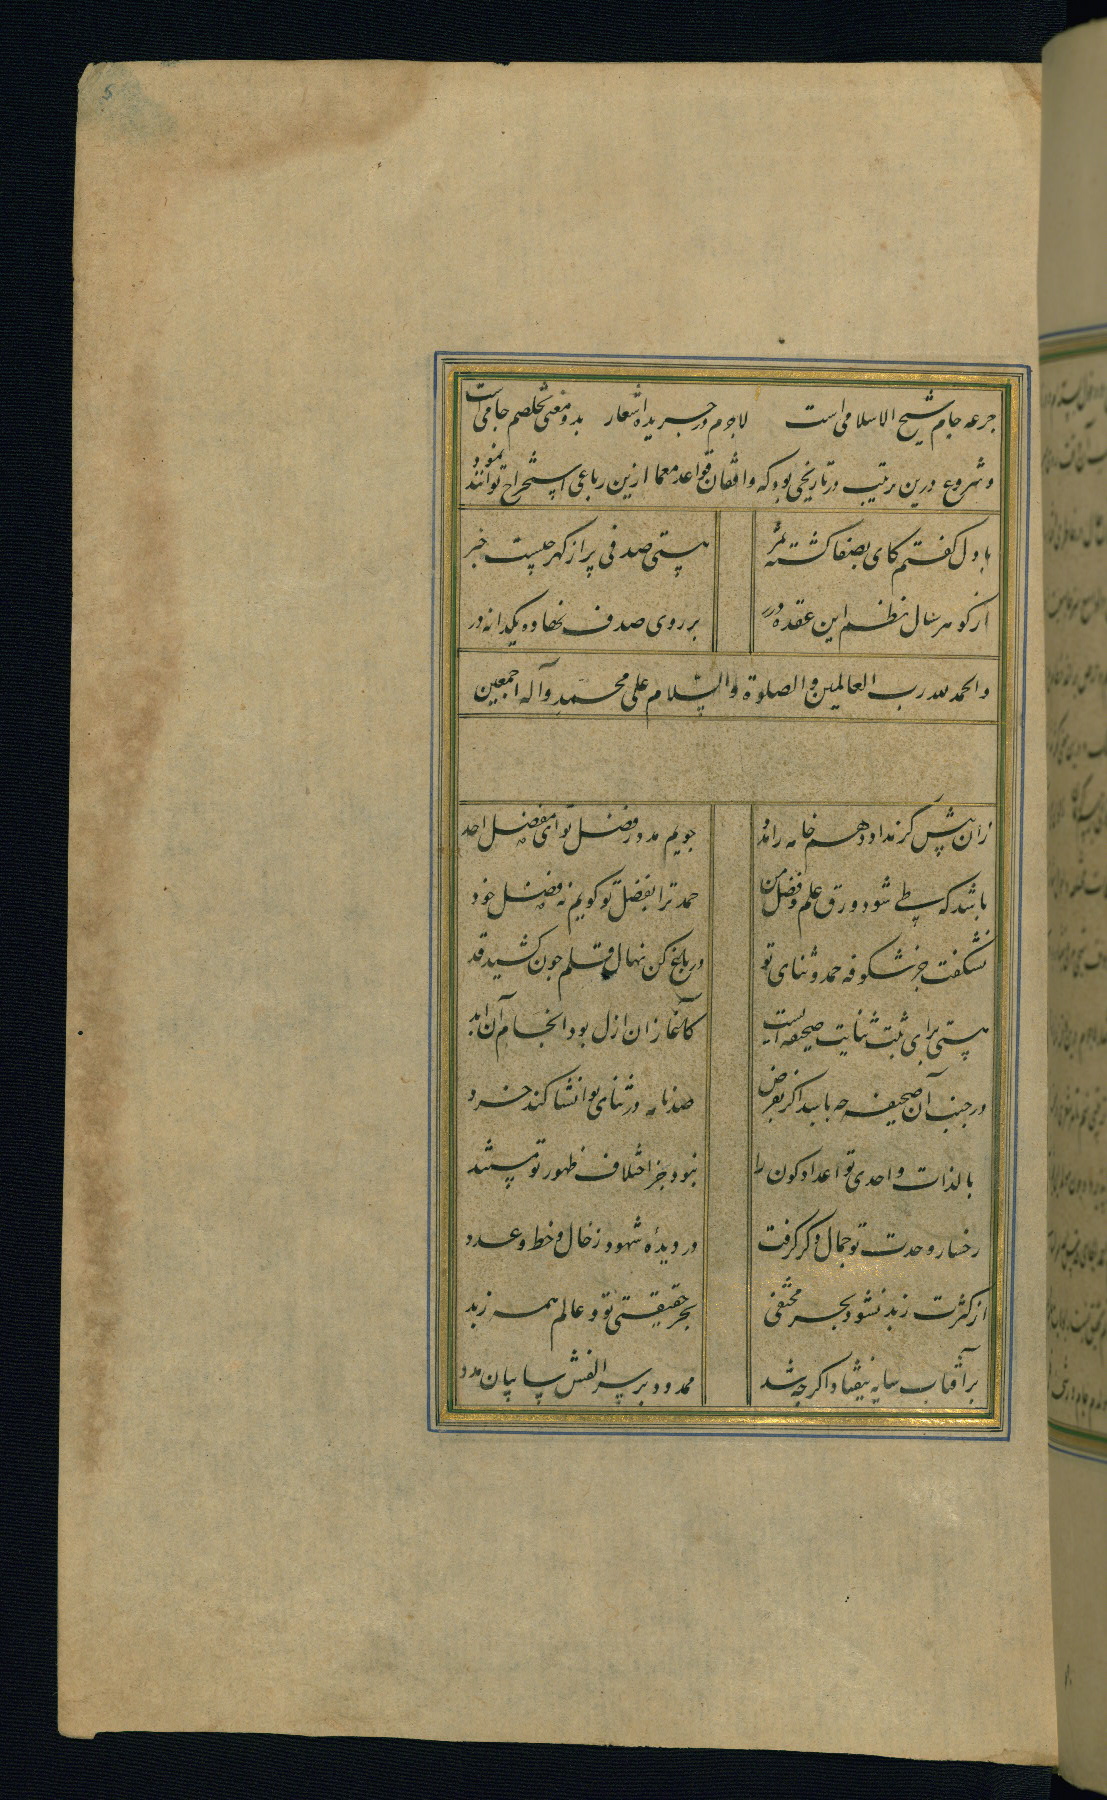 جرعه جام شیخ الاسلامی است لاجرم در جریده اشعار بدو معنی تخلصم جامی است
و شروع درین ترتیب در تاریخی بود که واقفان قواعد معما ازین رباعی استخراج توانند نمود
با دل کفتم کای بصفا کشته ثمر هستی صدفی پر از کهر چیست خبر
از کوهر سال نظم این عقده درر بر روی صدف نهاده یکدانه در
والحمد لله رب العالمین والصلوة والسلام علی محمد وآله اجمعین
زان پیش کز مداد دهم خامه را مدد جویم مدد ز فضل تو ای مفضل احد
باشد که طی شود ورق علم و فضل من حمد ترا بفضل تو کویم نه فضل خود
نشکفت جز شکوفه حمد و ثنای تو در باغ کن نهال قلم چون کشید قد
هستی برای ثبت ثنایت صحیفه ایست کآغاز آن ازل بود انجام آن ابد
در جنب آن صحیفه چه باشد اکر بفرض صد نامه در ثنای تو انشا کند خرد
بالذات واحدی تو اعداد کون را نبود جز اختلاف ظهور تو مستند
رخسار وحدت تو جمال دکر کرفت در دیده شهود ز خال و خط و عدد
از کثرت زبد نشود بحر مختفی بحر حقیقتی تو و عالم همه زبد
بر آفتاب سایه نیفتاد اکرچه شد ممدود بر سر الفش سایبان مد